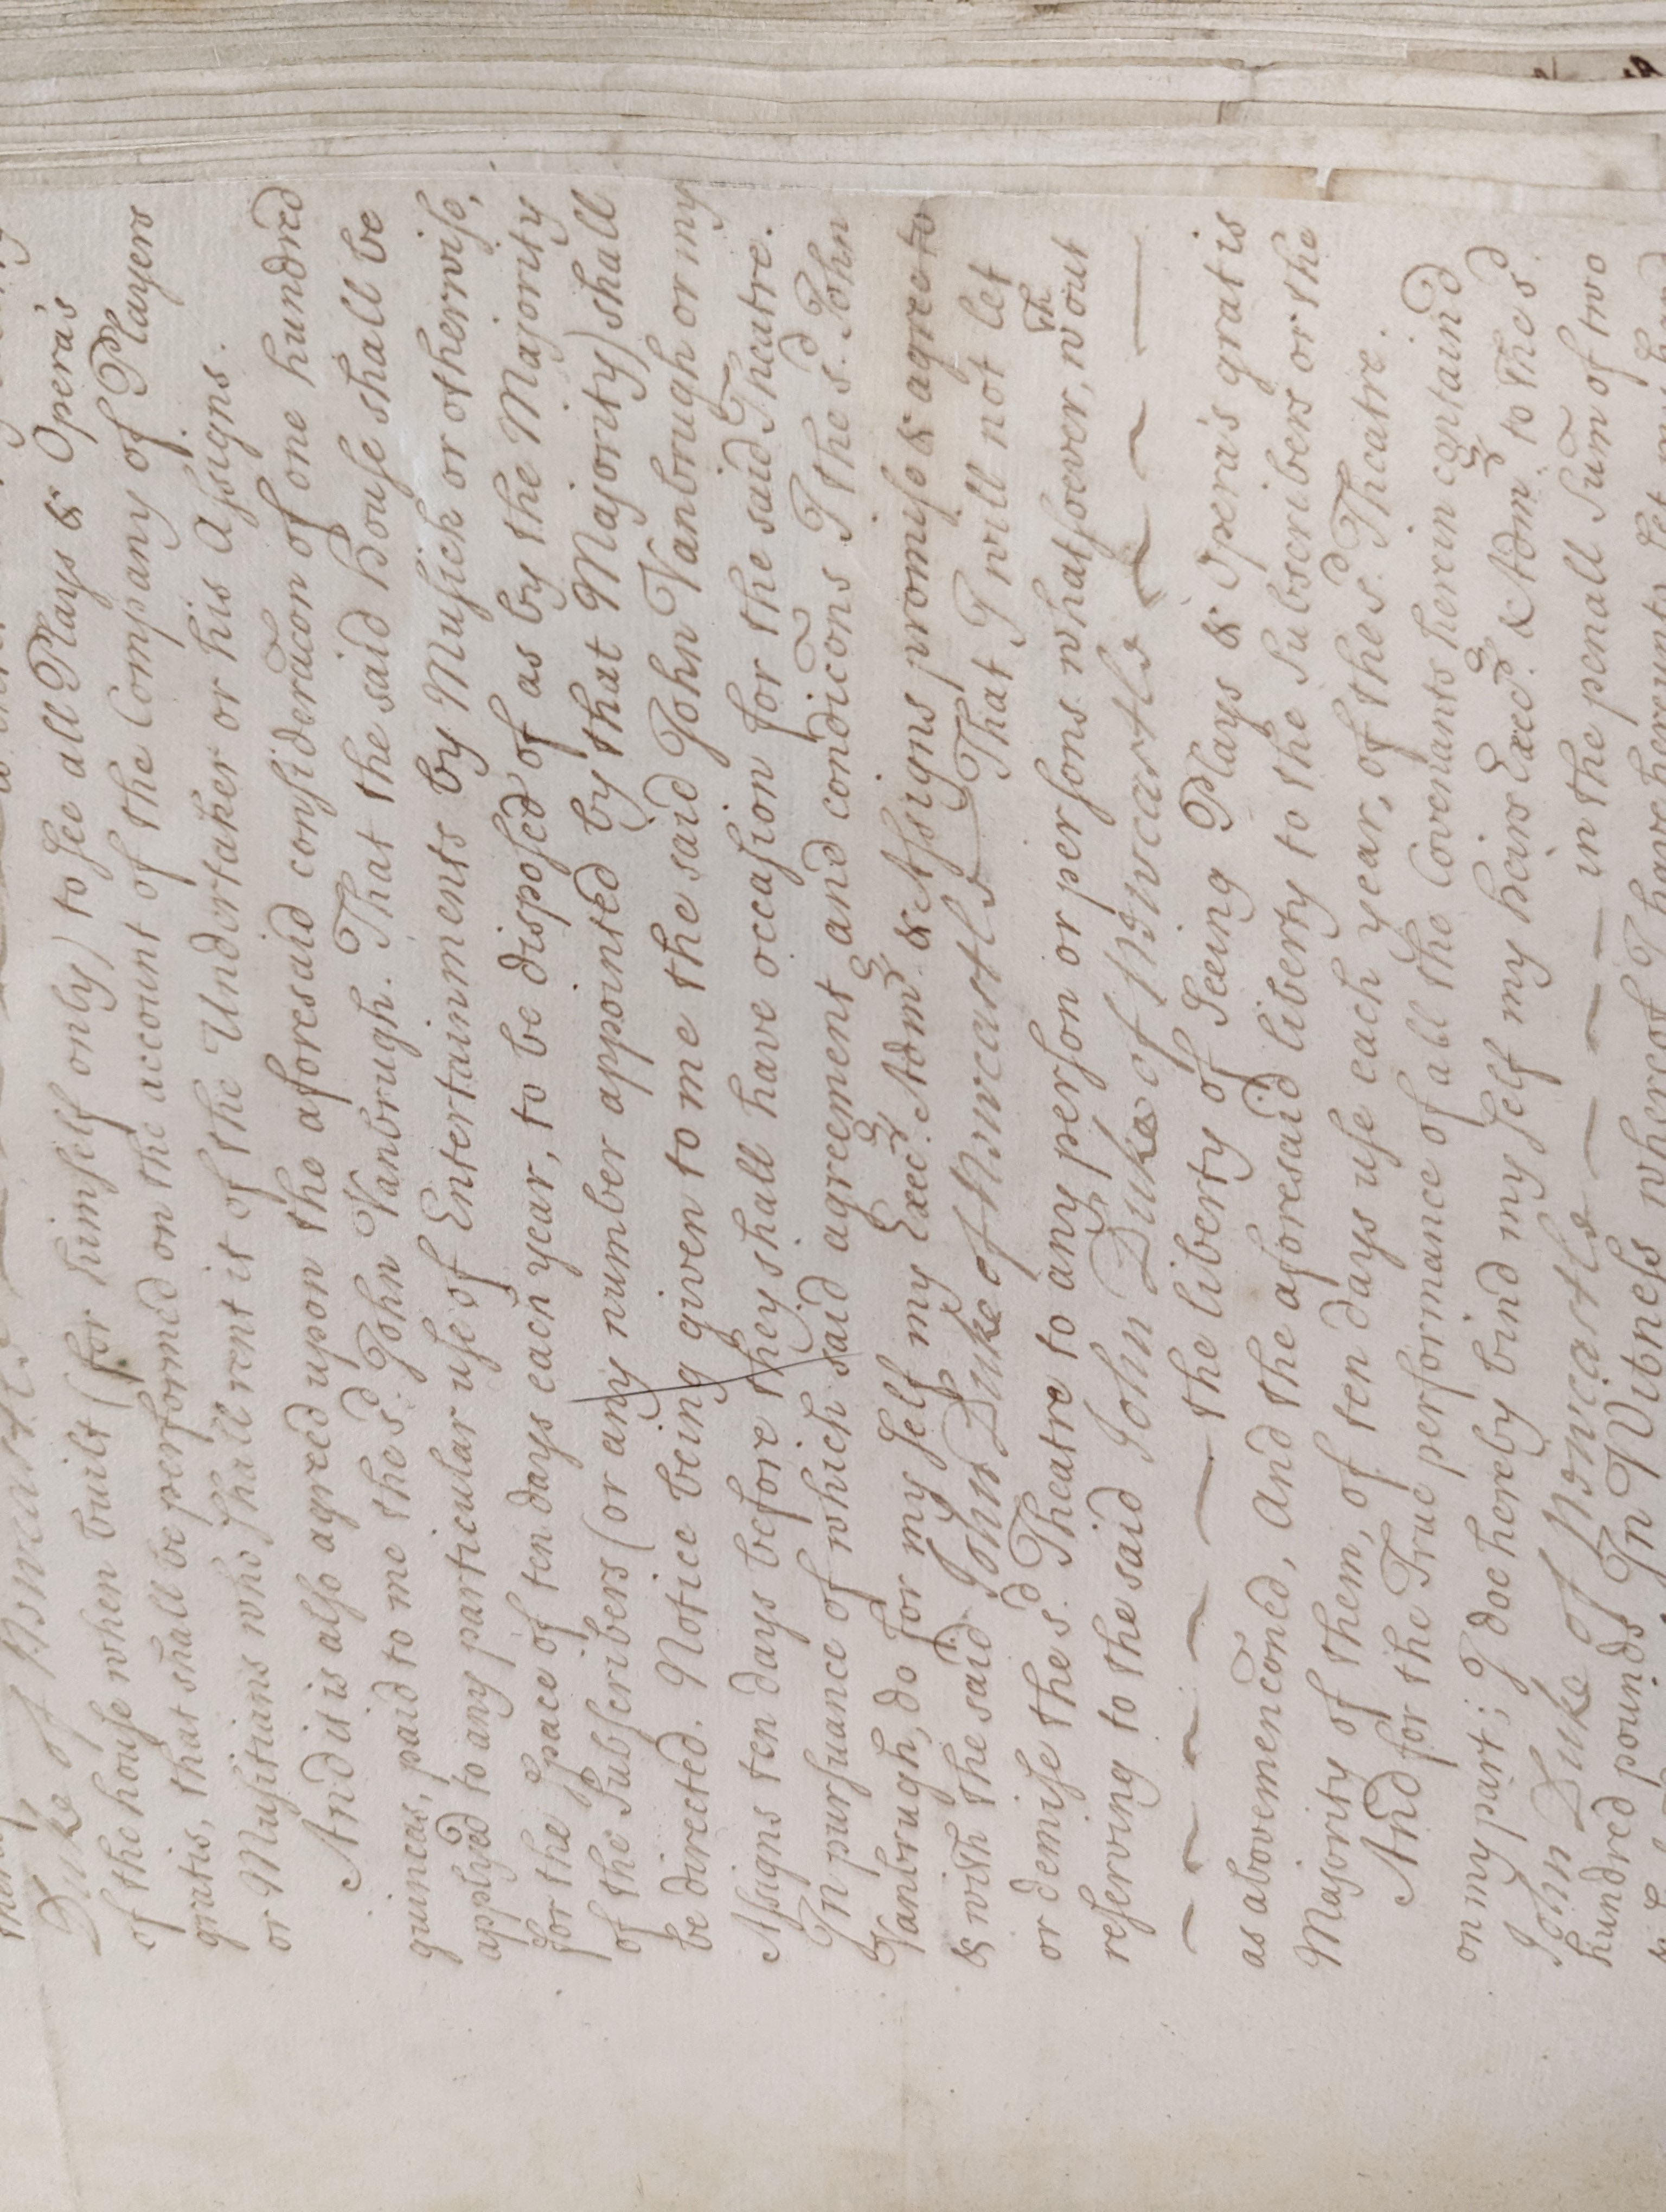 Duke of Newcastle
of the house when built (for himself only) to see all Plays & Opera's
gratis, that shall be performed on the account of the Company of Players
or Musitians who shall rent it of the Undertaker or his Assigns.
And it is also agreed upon the aforesaid consideracon of one hundred
guineas, paid to me the sd. John Vanbrugh. That the said house shall be
applyed to any particular use of Entertainments by Musick or otherwise,
for the space of ten days each year, to be disposed of as by the Majority
of the Subscribers (or any number appointed by that Majority) shall
be directed. Notice being given to me the said John Vanbrugh or my
Assigns ten days before they shall have occasion for the said Theatre.
In pursuance of which said agreement and condicons I the sd. John
Vanbrugh, do for my self my Execrs. Admrs. & Assigns promise & agree to
& with the said John Duke of Newcastle That I will not let
or demise the sd. Theatre to any person or persons whatsoever, wthout
reserving to the said John Duke of Newcastle
the liberty of Seeing Plays & Opera's gratis
as abovemenconed, And the aforesaid liberty to the Subscribers or the
Majority of them, of ten days use each year, of the sd. Theatre.
And for the True performance of all the Covenants herein containd
on my part; I doe hereby bind my self my heirs Execrs. & Admrs. to the sd.
John Duke of Newcastle in the penall Sum of two
hundred pounds. In Witness whereof I have hereunto Set my hand